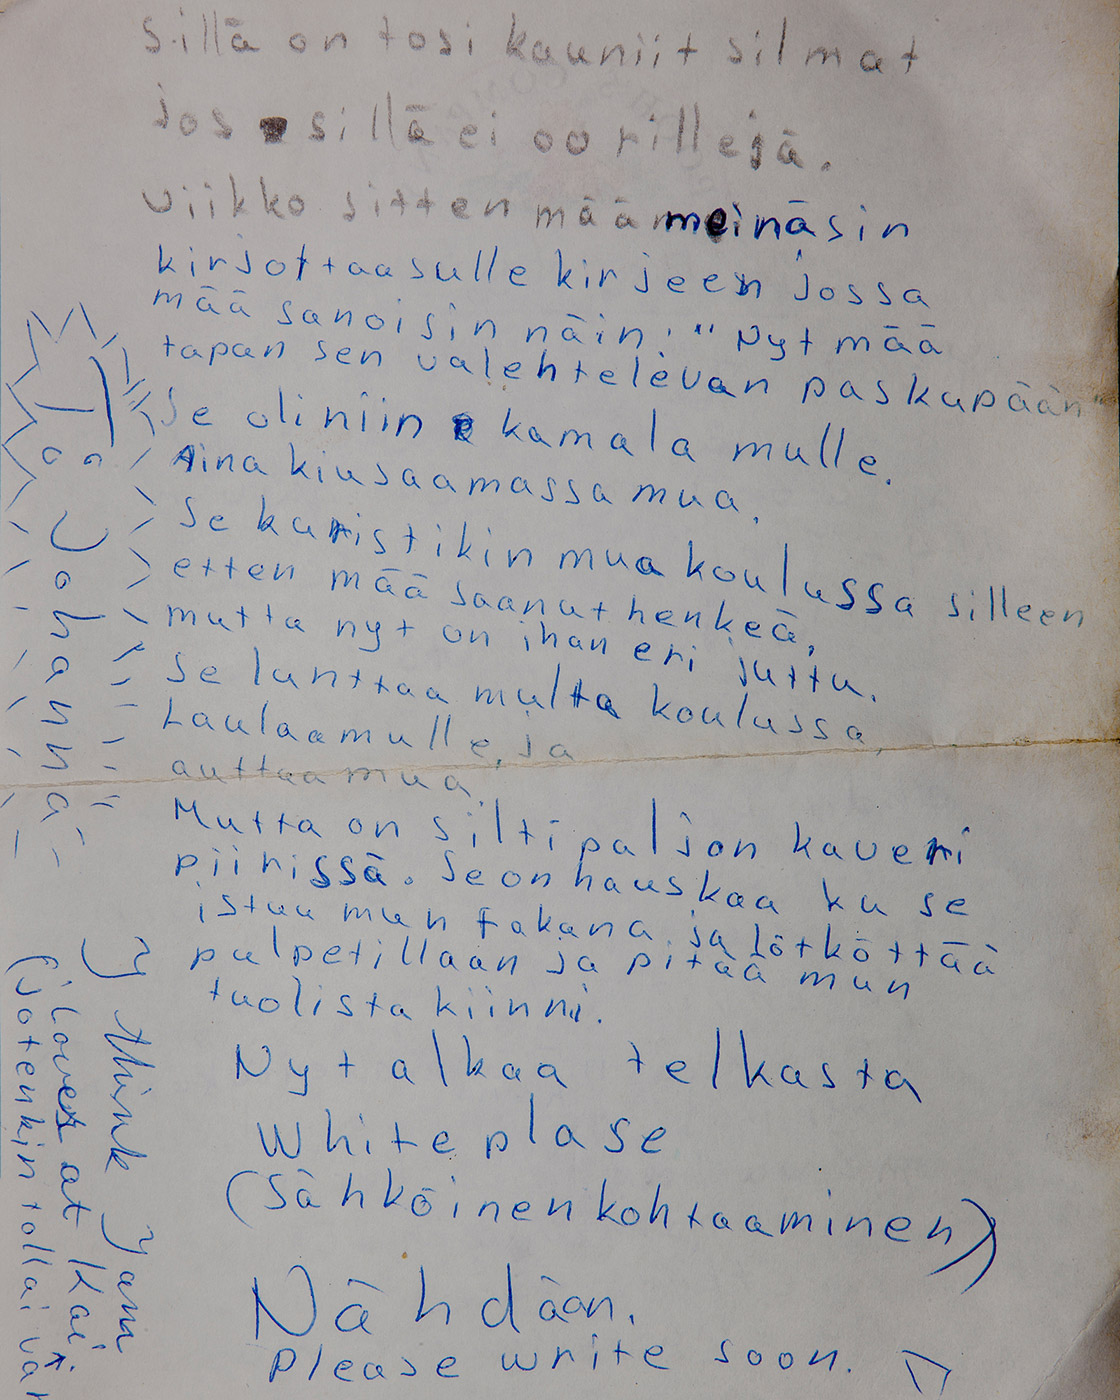 sillä on tosi kauniit silmat
jos sillä ei oo rillejä.
viikko sitten mää meinäsin
kirjottaasulle kirjeen jossa
mää sanoisin näin: "Nyt mää
tapan sen valehtelevan paskapään"
Se oli niin kamala mulle.
Aina kiusaamassa mua.
Se kuristikin mua koulussa silleen
etten mää saanut henkeä,
mutta nyt on ihan eri juttu.
Se lunttaa multa koulussa,
Laulaamulle, ja
auttaa mua.
Mutta on silti paljon kaveri
piirissä. Se on hauskaa ku se
istuu mun takana, ja lötköttää
pulpetillaan ja pitää mun
tuolista kiinni.
Nyt alkaa telkasta
White plase
(Sähköinen kohtaaminen)
Nähdään.
Please write soon.
Johanna
I think I am
lover at Kai
(jotenkin tollai